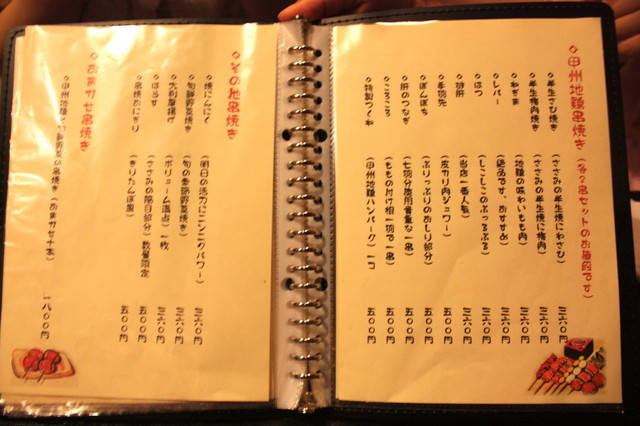 ◇甲州地鶏串焼き（各々串セットのお値段です）
◇半生さび焼き（ささみの半生焼にわさび）三六〇円
◇半生梅肉焼き（ささみの半生焼に梅肉）三六〇円
◇ねぎま（地鶏の味わいもも肉）三六〇円
◇レバー（絶品です、おすすめ）三六〇円
◇はつ（しこしこのぷっるぷる）三六〇円
◇砂肝（当店一番人気）三六〇円
◇手羽先（皮カリ肉ジュワー）五〇〇円
◇ぼんぼち（ぷりっぷりのおしり部分）五〇〇円
◇肝のつなぎ（七羽分使用貴重な一串）五〇〇円
◇ころころ（ももの付け根一羽で一串）五〇〇円
◇特製つくね（甲州地鶏ハンバーグ）一コ 五〇〇円
◇その他串焼き
◇焼にんにく（明日の活力にニンニクパワー）三六〇円
◇旬鮮野菜焼き（旬の季節野菜焼き）三六〇円
◇大判厚揚げ（ボリューム満点）一枚 三六〇円
◇はらす（ささみの希少部分）数量限定 五〇〇円
◇串焼おにぎり（きりたんぽ風）五〇〇円
◇おまかせ串焼き
◇甲州地鶏と旬鮮野菜の串焼き（おまかせ十本）一八〇〇円